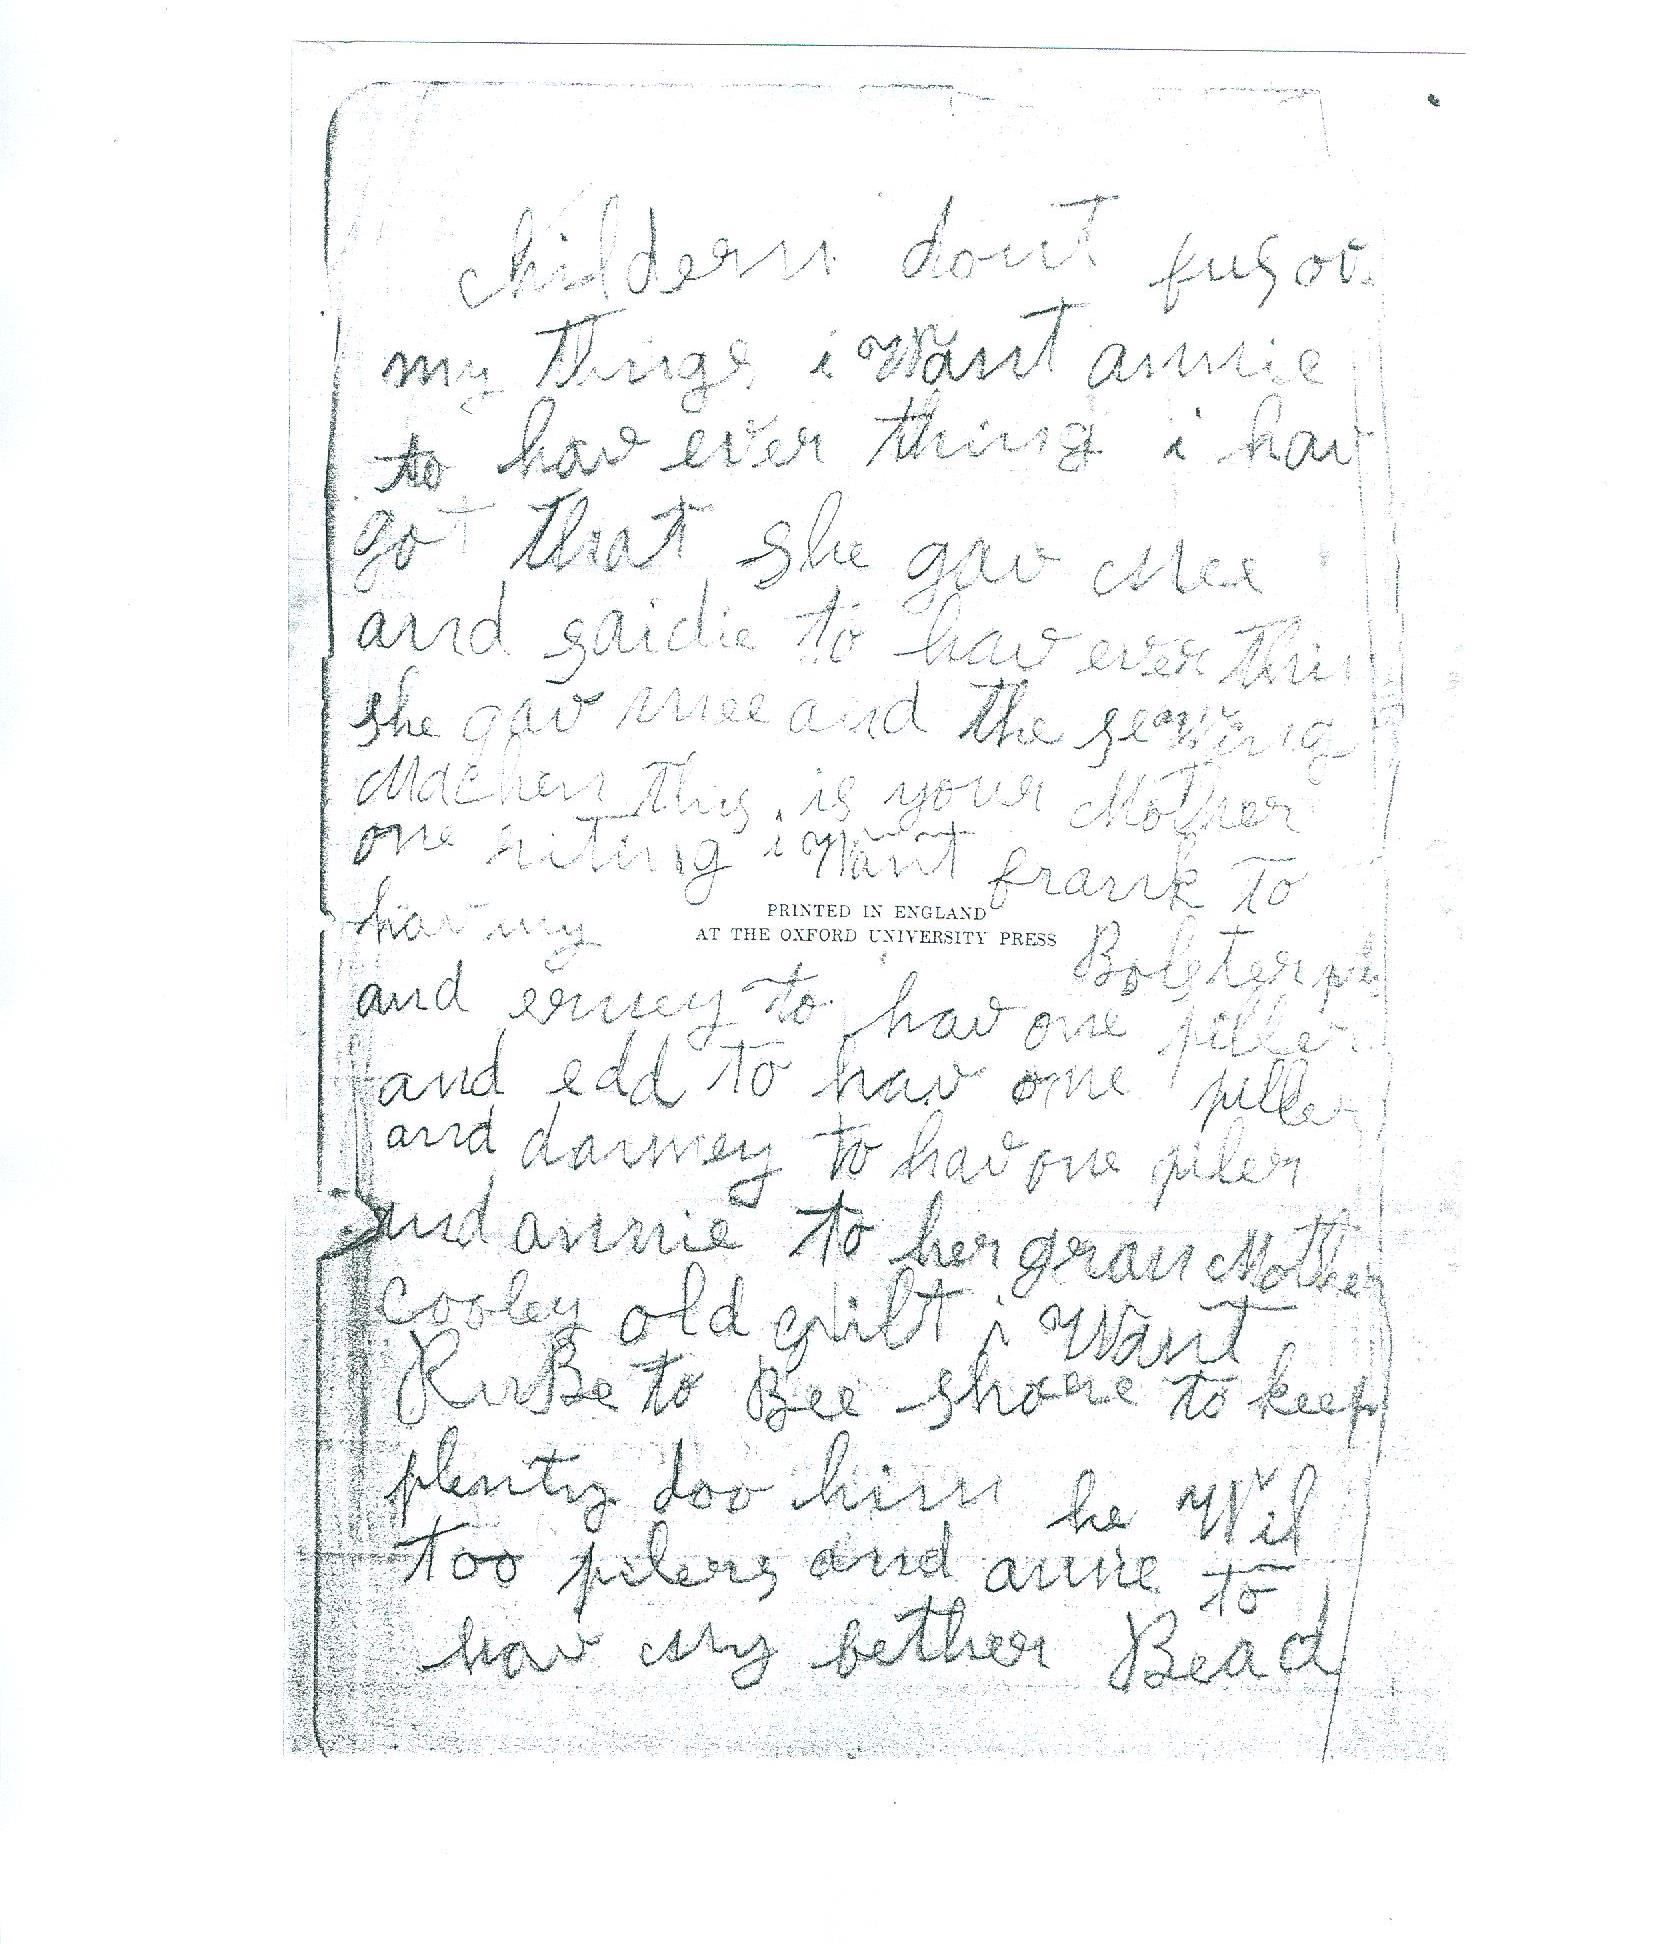 childern dont fus ov
my things i Want annie
to hav ever thing i hav
got that she gav mee
and saidie to hav ever thin
she gav mee and the seawing
Machen this is your Mother
one riting i Want frank to
hav my
PRINTED IN ENGLAND
AT THE OXFORD UNIVERSITY PRESS
Bolster
and erney to hav one piller
and edd to hav one piller
and danney to hav one piler
and annie to her gran Mother
cooley old qilt i Want
RuBe to Bee shore to keep
plenty doo him he Wil
too pilers and annie to
hav my fether Bead